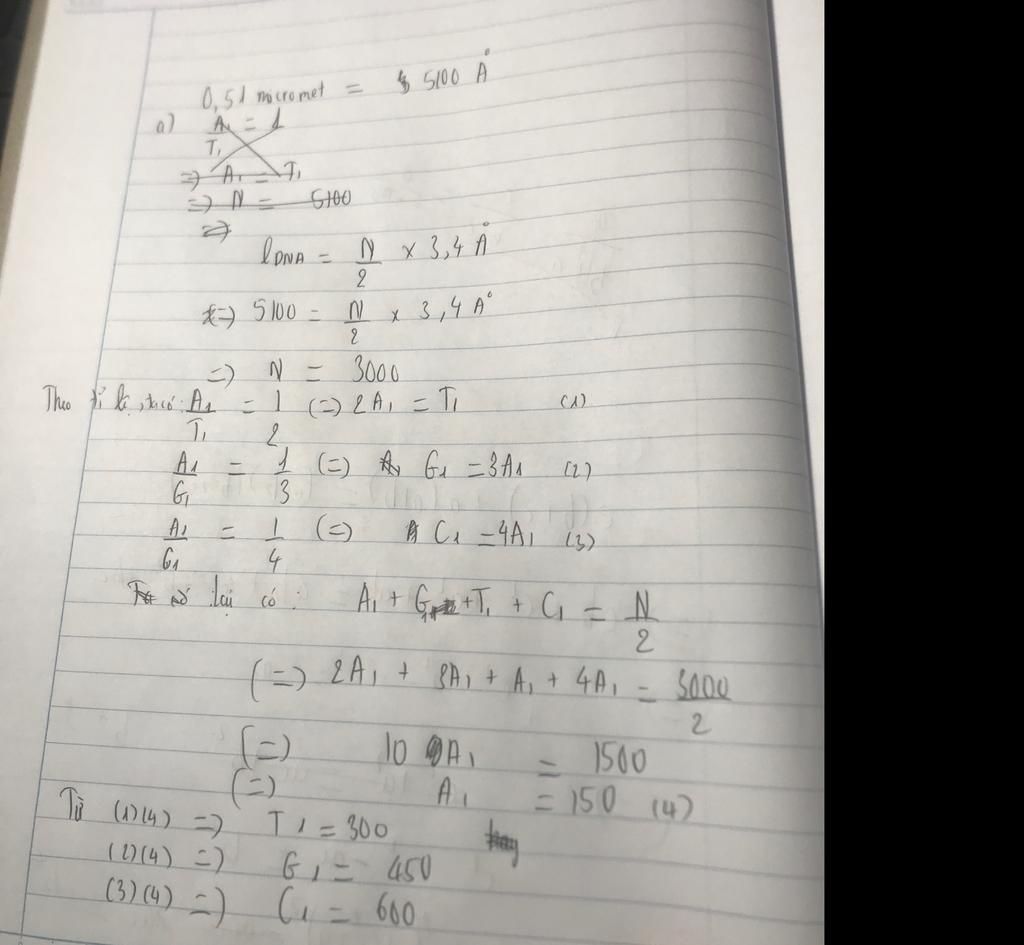 0,51 micromet = 5100 Å
a) A₁/T₁ = 1
=> A₁ = T₁
=> N = 5100
=>
lDNA = N/2 × 3,4 Å
=> 5100 = N/2 × 3,4 A°
=> N = 3000
Theo tỉ lệ, ta có: A₁/T₁ = 1/2 (=) 2A₁ = T₁ (1)
A₁/G₁ = 1/3 (=) G₁ = 3A₁ (2)
A₁/G₁ = 1/4 (=) C₁ = 4A₁ (3)
lại có: A₁ + G₁ + T₁ + C₁ = N/2
(=) 2A₁ + 3A₁ + A₁ + 4A₁ = 3000/2
(=) 10 A₁ = 1500
(=) A₁ = 150 (4)
Từ (1)(4) => T₁ = 300
(2)(4) => G₁ = 450
(3)(4) => C₁ = 600